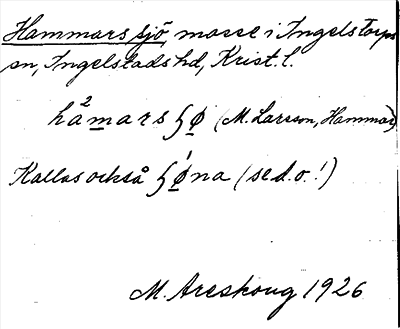 Hammars sjö, mosse i Ingelstorps
sn, Ingelstads hd, Krist. l.
håmars ʃø (M. Larsson, Hammar)
Kallas också ʃøna (se d.o.!)
M. Areskoug 1926